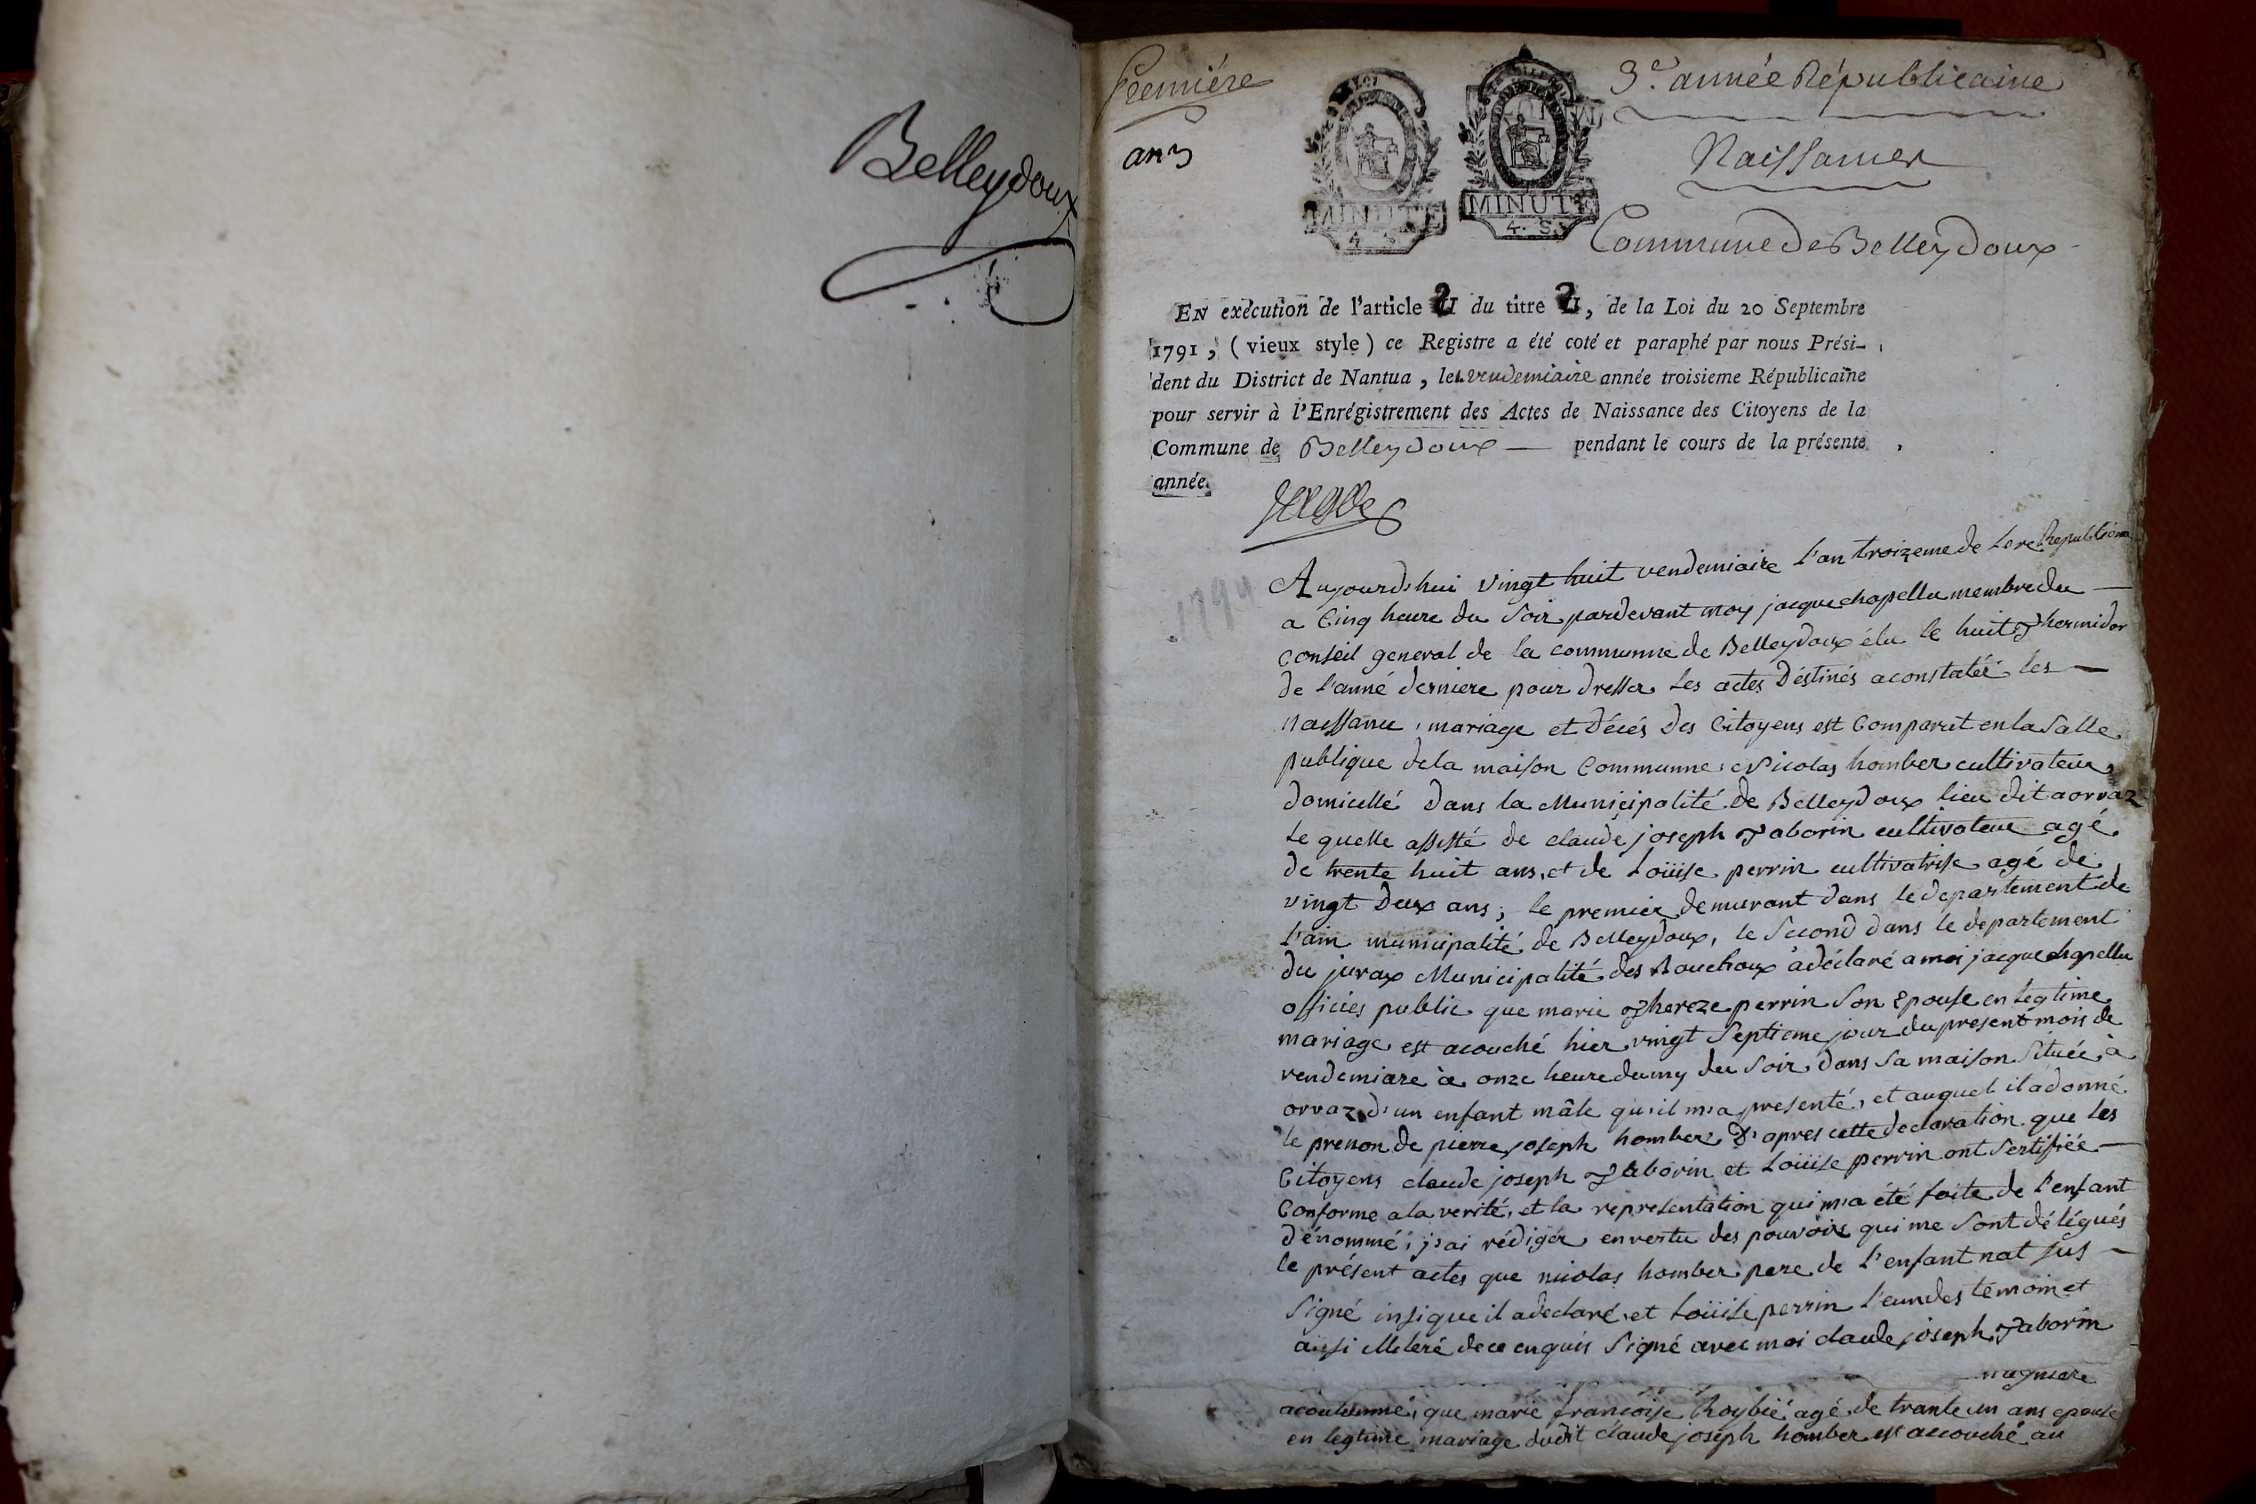 Belleydoux
Premiére
an 3
3e. année Républicaine
Naissances
Commune de Belleydoux
MINUTE
4. S.
MINUTE
4. S.
EN exécution de l'article II du titre II, de la Loi du 20 Septembre
1791, (vieux style) ce Registre a été coté et paraphé par nous Prési-
dent du District de Nantua, le 1. vendemiaire année troisieme Républicaine
pour servir à l'Enrégistrement des Actes de Naissance des Citoyens de la
Commune de Belleydoux — pendant le cours de la présente
année.
1794
Aujourd'hui vingt huit vendemiaire l'an troizeme de L'ere Republicaine
a Cinq heure du Soir pardevant moy jacque chapellu membre du —
conseil general de la communne de Belleydoux élu le huit Thermidor
de l'anné derniere pour dresser les actes déstinés a constatér les —
naissance, mariage et décés des Citoyens est Comparut en la Salle
publique de la maison Communne Nicolas homber cultivateur
domicellé dans la Municipalité de Belleydoux lieu dit a orvaz
le quelle assisté de claude joseph Taborin cultivateur agé
de trente huit ans, et de Loüise perrin cultivatrise agé de
vingt Deux ans; le premier demurant dans le departement de
l'ain municipalité de Belleydoux, le Second dans le departement
du jurax Municipalité des Bouchoux à déclaré a moi jacque chapellu
officies public que marie Thereze perrin Son Epouse en legtime
mariage est acouché hier vingt Septieme jour du present mois de
vendemiare à onze heure dumy du Soir dans sa maison Située à
orvaz d'un enfant mâle qu'il m'a presenté, et auquel il a donné
le prenon de pierre joseph homber D'apres cette declaration que les
Citoyens claude joseph Taborin et Loüise perrin ont Sertifiée —
Conforme a la verité, et la representation qui m'a été faite de l'enfant
dénommé; j'ai rédiger en vertu des pouvoirs qui me Sont délégués
le présent actes que nicolas homber pere de l'enfant nat sus —
Signé insi que il a declaré, et Loüise perrin l'eun des témoin et
ausi de ce enquis Signé avec moi claude joseph Taborin
que marie francoise agé de trante un ans epouse
en legtime mariage dudit claude joseph homber est accouché au